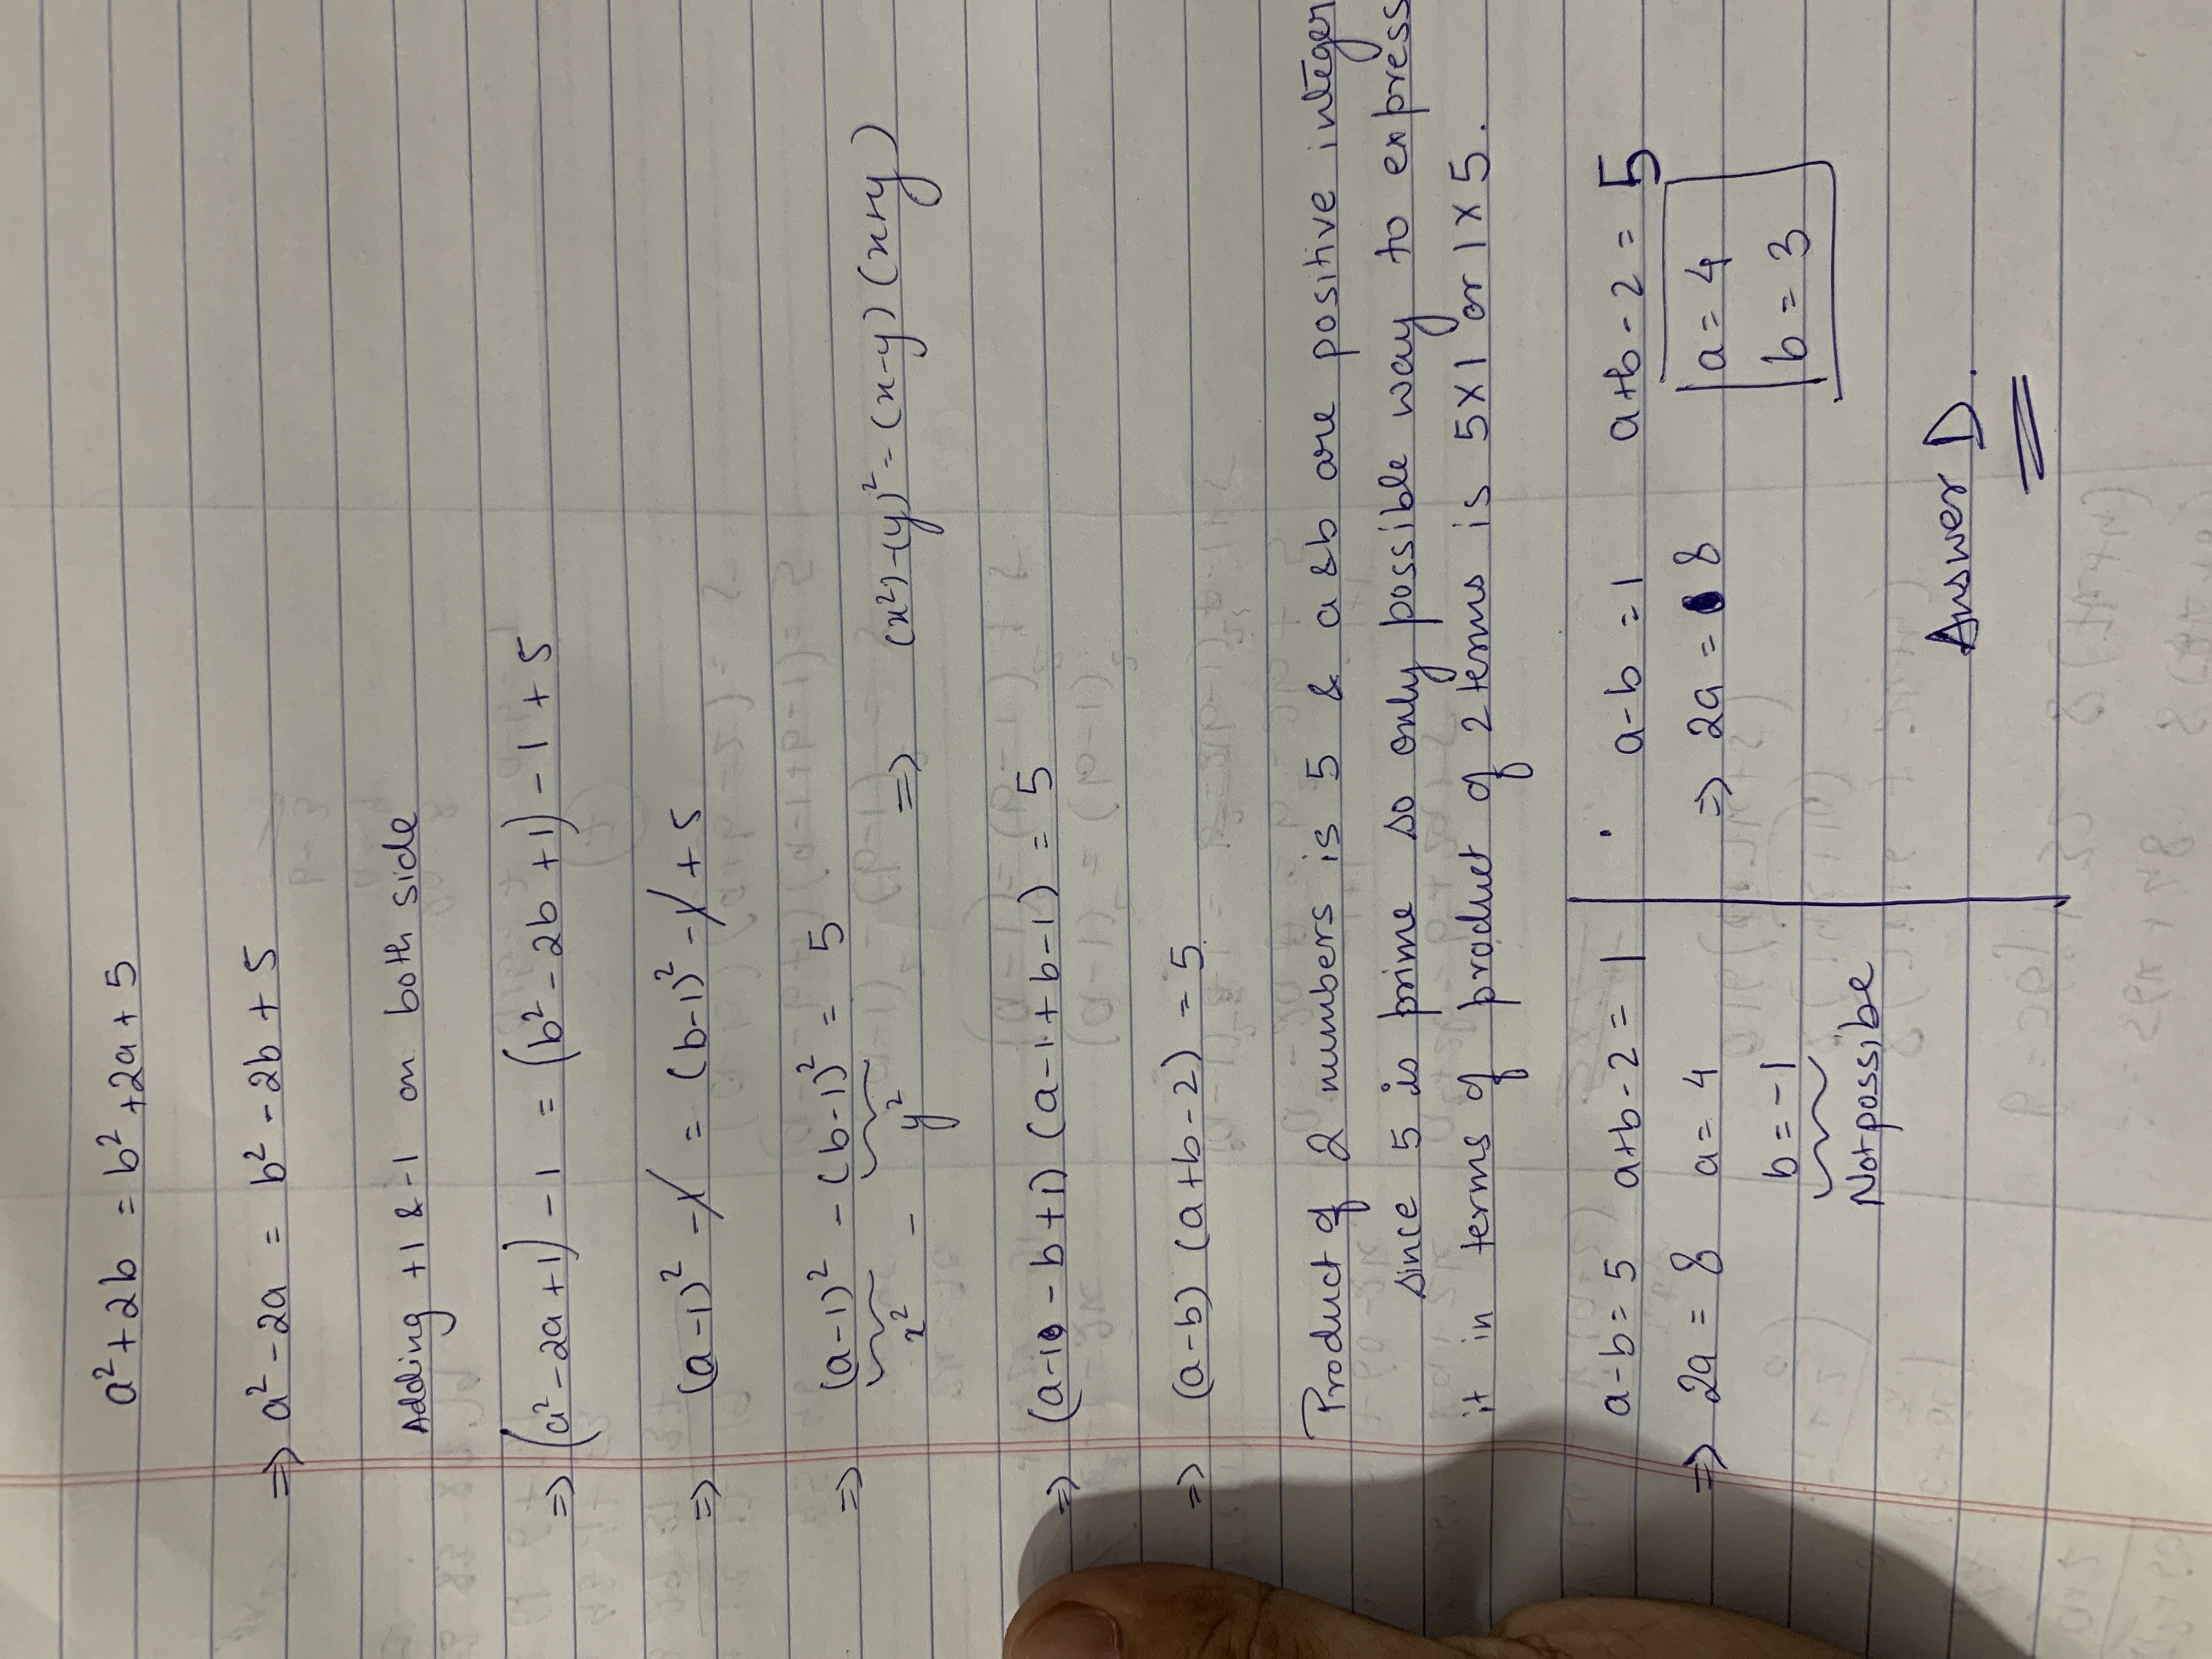 a² + 2b = b² + 2a + 5
⇒ a² - 2a = b² - 2b + 5
Adding +1 & -1 on both side
⇒ (a² - 2a + 1) - 1 = (b² - 2b + 1) - 1 + 5
⇒ (a-1)² - 1 = (b-1)² - 1 + 5
⇒ (a-1)² - (b-1)² = 5
x² - y² ⇒ (x²) - (y)² = (x-y) (x+y)
⇒ (a-1 - b+1) (a-1+b-1) = 5
⇒ (a-b) (a+b-2) = 5
Product of 2 numbers is 5 & a & b are positive integer
since 5 is prime so only possible way to express
it in terms of product of 2 terms is 5×1 or 1×5.
a-b = 5 a+b-2 = 1 a-b = 1 a+b-2 = 5
⇒ 2a = 8 a = 4 ⇒ 2a = 8 a = 4
b = -1 b = 3
Not possible
Answer D.